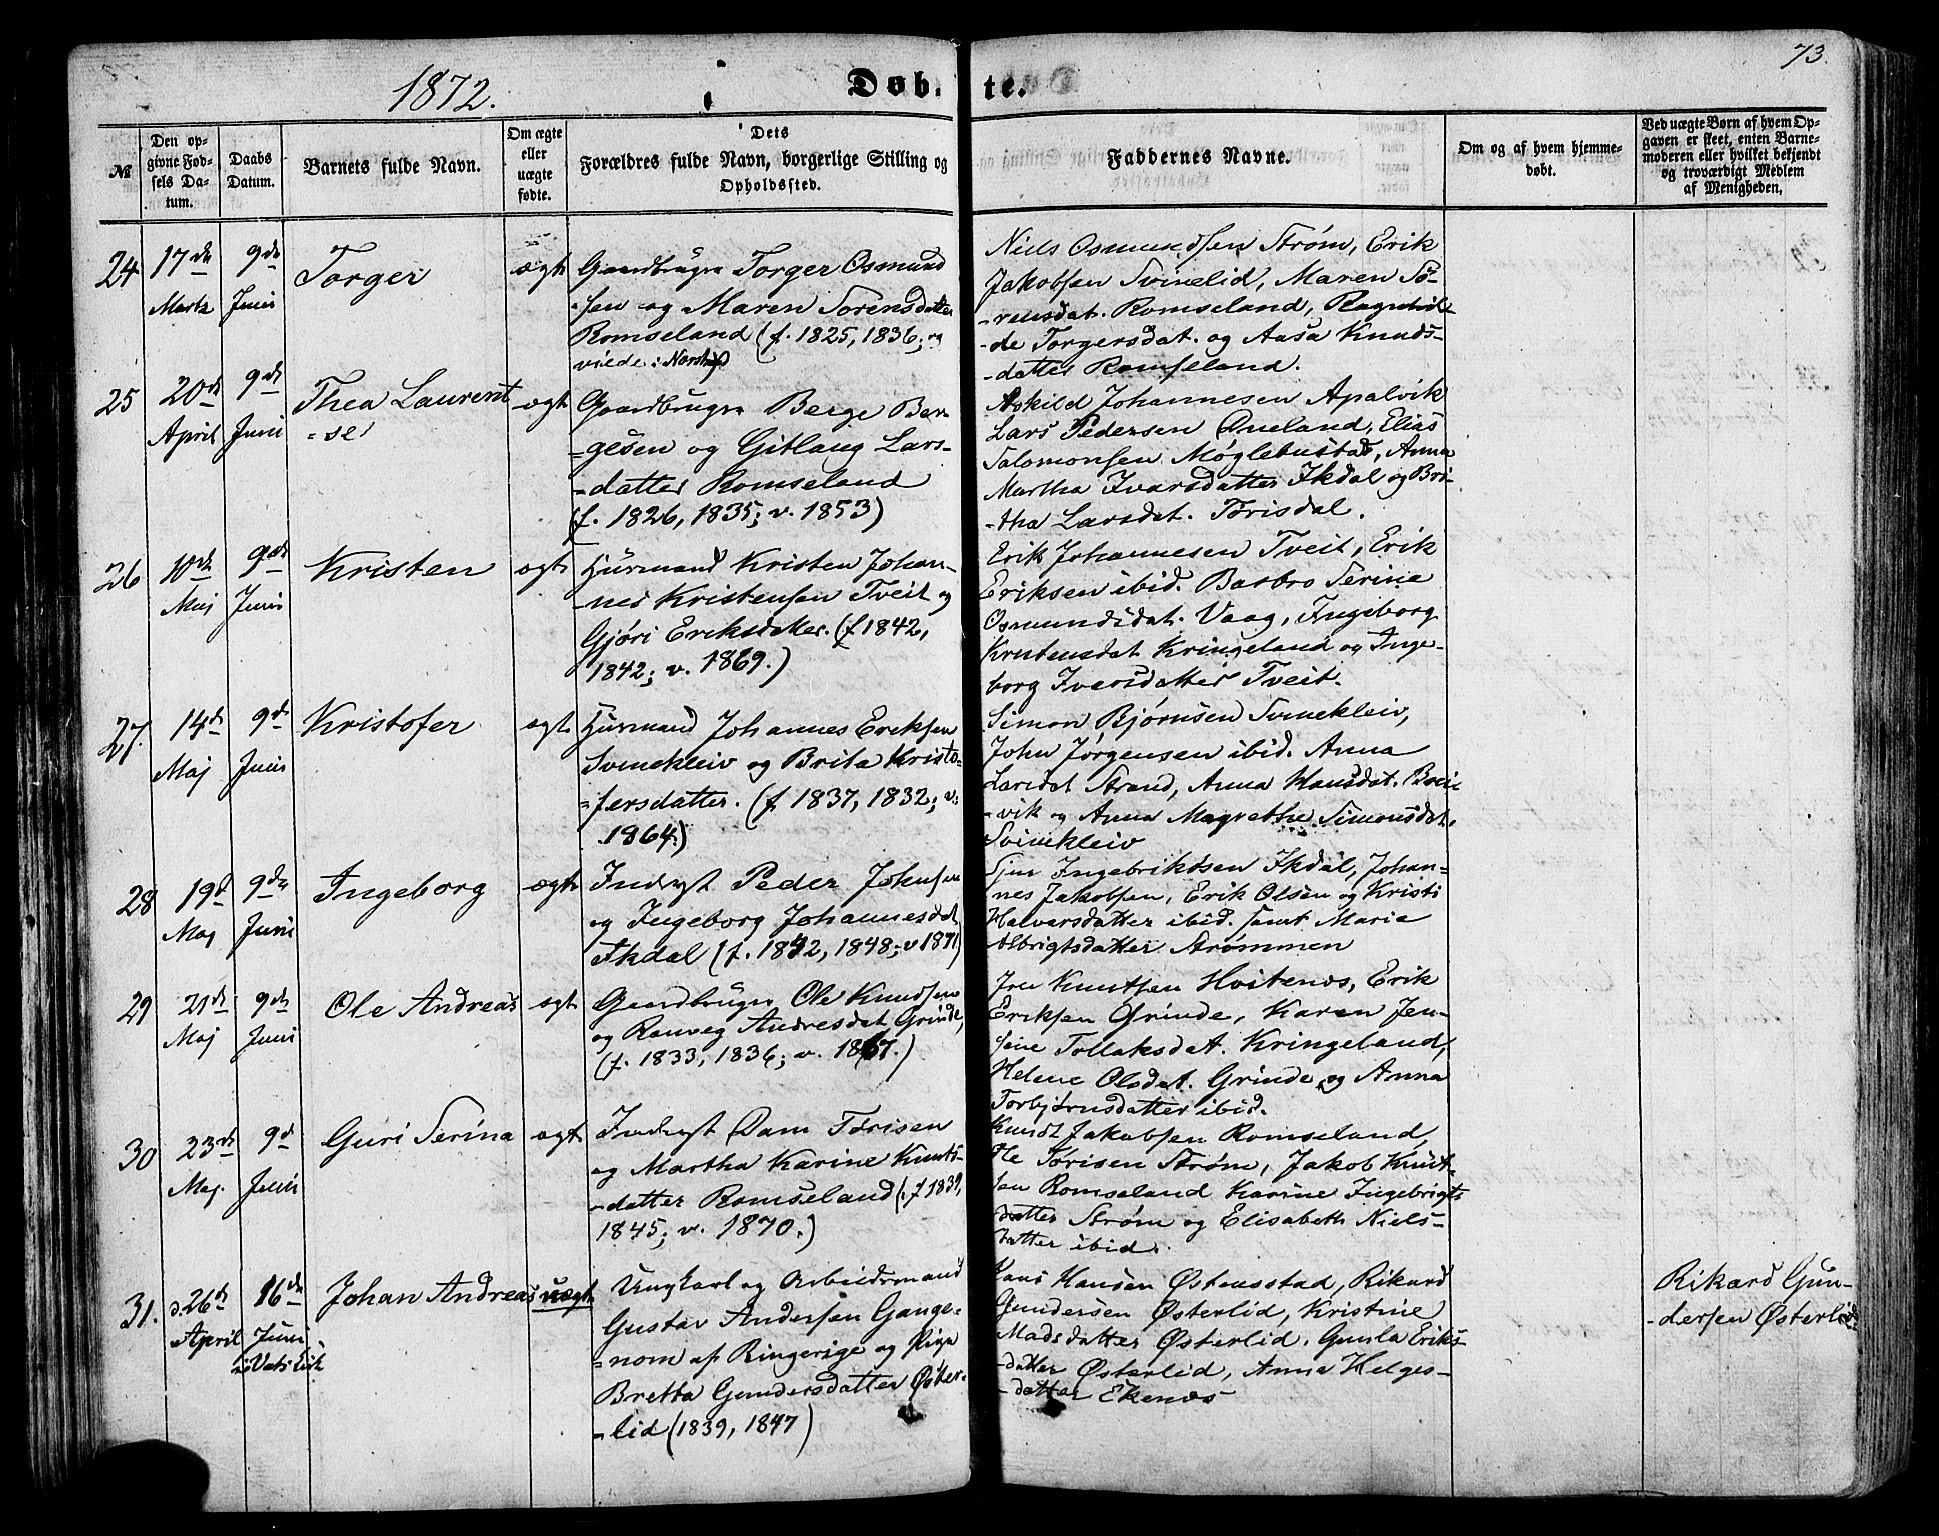 73.
1872.
Døb. te.
№
Den opgivne Fødsels Datum.
Daabs Datum.
Barnets fulde Navn.
Om ægte eller uægte fødte.
Dets
Forældres fulde Navn, borgerlige Stilling og
Opholdssted.
Faddernes Navne.
Om og af hvem hjemmedøbt.
Ved uægte Børn af hvem Opgaven er skeet, enten Barnemoderen eller hvilket bekjendt og troværdigt Medlem af Menigheden.
24
17de
Marts
9de
Juni
Torger
ægt
Gaardbruger Torger Osmund
-sen og Maren Sørensdatter
Romseland (f. 1825, 1836; og
viede i
Niels Osmundsen Strøm, Erik
Jakobsen Svinelid, Maren Sø-
-rensdat. Romseland, Ragnhil-
-de Torgersdat. og Aasa Knuds-
-datter Romseland.
25
20de
April
9de
Juni
Thea Laurent
-se
ægt
Gaardbruger Berge Ber-
-gesen og Gitlaug Lars-
-datter Romseland
(f. 1826, 1835; v. 1853)
Askild Johannesen Apalvik
Lars Pedersen Øneland, Elias
Salomonsen Møglebustad, Anna
Martha Ivarsdatter Ikdal og Bri-
-tha Larsdat. Tørisdal.
26
10de
Maj
9de
Juni
Kristen
ægt
Huusmand Kristen Johan-
-nes Kristensen Tveit og
Gjøri Eriksdatter. (f 1842,
1842; v. 1869.)
Erik Johannesen Tveit, Erik
Eriksen ibid. Barbro Serine
Osmundsdat. Vaag, Ingeborg
Knutensdat Kringeland og Inge-
borg Iversdatter Tveit.
27.
14de
Maj
9de
Juni
Kristofer
ægt
Huusmand Johannes Eriksen
Svinekleiv og Brita Kristo-
-fersdatter. (f. 1837, 1832; v.
1864.)
Simon Bjørnsen Svinekleiv,
John Jørgensen ibid. Anna
Larsdat Strand, Anna Hansdat. Brei
-vik og Anna Magrethe Simonsdat.
Svinekleiv
28
19d
Maj
9de
Juni
Ingeborg
ægt
Inderst Peder Johnsen
og Ingeborg Johannesdat
Ikdal (f. 1842, 1848; v 1871)
Sjur Ingebriktsen Ikdal, Johan-
nes Jakobsen, Erik Olsen og Kristi
Halversdatter ibid. samt Maria
Albrigtsdatter Strømmen
29
21de
Maj
9de
Juni
Ole Andreas
ægt
Gaardbruger Ole Knudsen
og Ranveg Andresdat Grinde,
(f. 1833, 1836; v. 1867.)
Knutsen Hvitenes, Erik
Eriksen Grinde, Karen Jen-
sine Tollaksdat. Kringeland,
Helene Olsdat. Grinde og Anna
Torbjørnsdatter ibid.
30
23de
Maj.
9d
Juni
Guri Serina
ægt
Inderst Dam Tørisen
og Martha Karine Knuts-
-datter Romseland (f 1839,
1845; v. 1870.)
Knudt Jakobsen Romseland,
Ole Tørisen Strøm, Jakob Knut-
sen Romseland Karine Ingebrigts
datter Strøm og Elisabeth Niels-
datter ibid.
31.
d. 26de
April
16de
Juni
i Vats Kirk
Johan Andreas
uægt
Ungkarl og Arbeidsmand
Gustav Andersen Gange-
-nom af Ringerige og Pige
Bretta Gundersdatter Øster-
-lid (1839, 1847)
Hans Hansen Østensstad, Rikard
Gundersen Østerlid, Kristine
Madsdatter Østerlid, Gunla Eriks-
-datter Østerlid, Anna Helges-
-datter Ekenes
Rikard Gun-
-dersen Østerlid